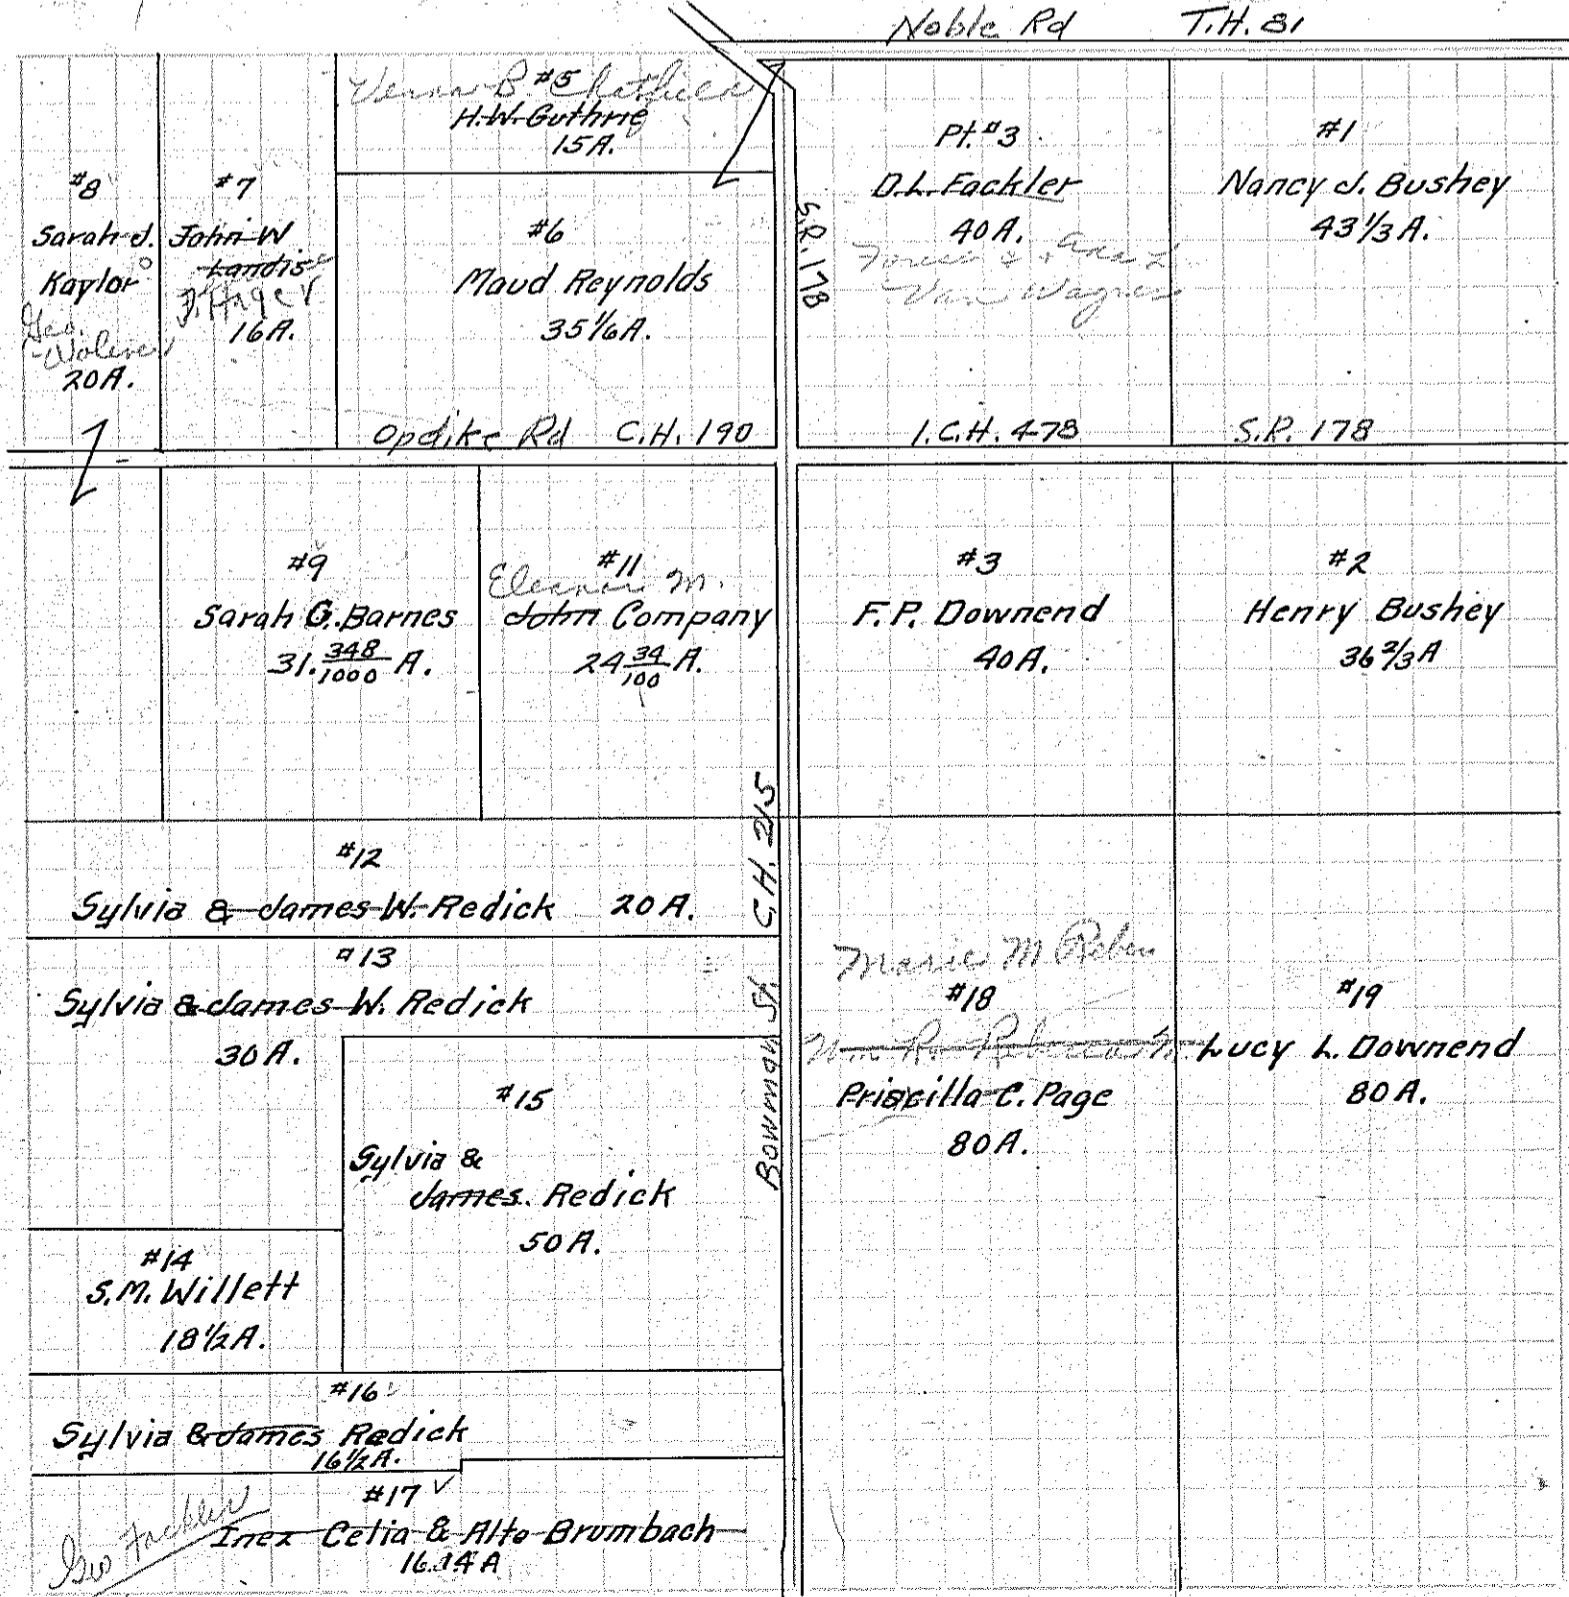 Noble Rd T.H. 81
#8
Sarah J.
Kaylor
Geo.
20A.
#7
John W
Landis
16A.
Verna B. Chatfield
#5
H.W. Guthrie
15A.
#6
Maud Reynolds
35 1/6 A.
Opdike Rd C.H. 190
S.R. 178
Pt. #3
D.L. Fackler
40A.
Van Wagner
I.C.H. 478
#1
Nancy J. Bushey
43 1/3 A.
S.R. 178
#9
Sarah G. Barnes
31. 348/1000 A.
#11
Eleanor M.
John Company
24 34/100 A.
#3
F.P. Downend
40A.
#2
Henry Bushey
36 2/3 A
#12
Sylvia & James W. Redick 20A.
C.H. 215
#13
Sylvia & James W. Redick
30A.
Bowman St.
#15
Sylvia &
James. Redick
50A.
#14
S.M. Willett
18 1/2 A.
#16
Sylvia & James Redick
16 1/2 A.
#17
Geo Fackler
Inez Celia & Alto Brumbach
16.14 A
Marie M
#18
Priscilla C. Page
80A.
#19
Lucy L. Downend
80A.